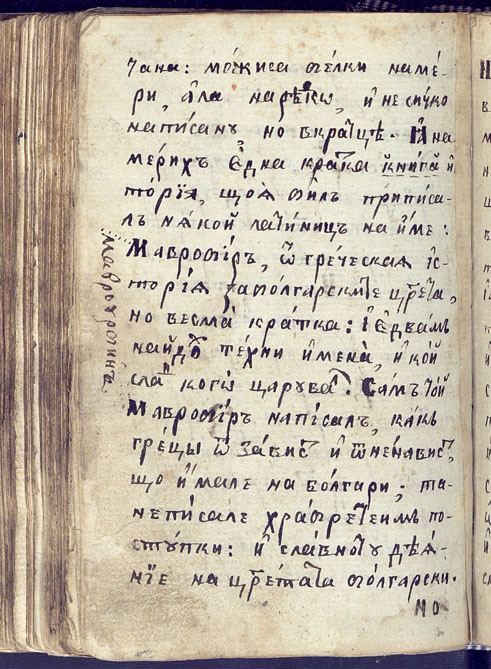 мери, а҆ла нарѣ́ко, и҆ не сичко
написанъ но вкраⷮцѣ. И҆на
мерихъ една краⷮка книга и҆
торїѧ, щоѧ билъ приписа-
лъ нѧкой латиницъ на и҆ме:
Мавробиръ, ѿ греческаѧ і҆с-
торіѧ за болгарскиⷮе црета,
но весма̀ кра́тка: і҆ Едвамъ
найдꙋ те́хни и҆мена̀, и҆ кой
слаⷣ когѡ царува. Самъ той
Мавробиръ написалъ, ка́къ
гре́цы ѿ за́висⷮ и҆ ѿ не́нависⷮ,
що и҆мале на бо́лгари; та-
не писале храбреⷮеимъ по-
стꙋпки: и҆ сла́вноⷮу дѣѧ́-
нїе на цретаⷮа болгарски.
но